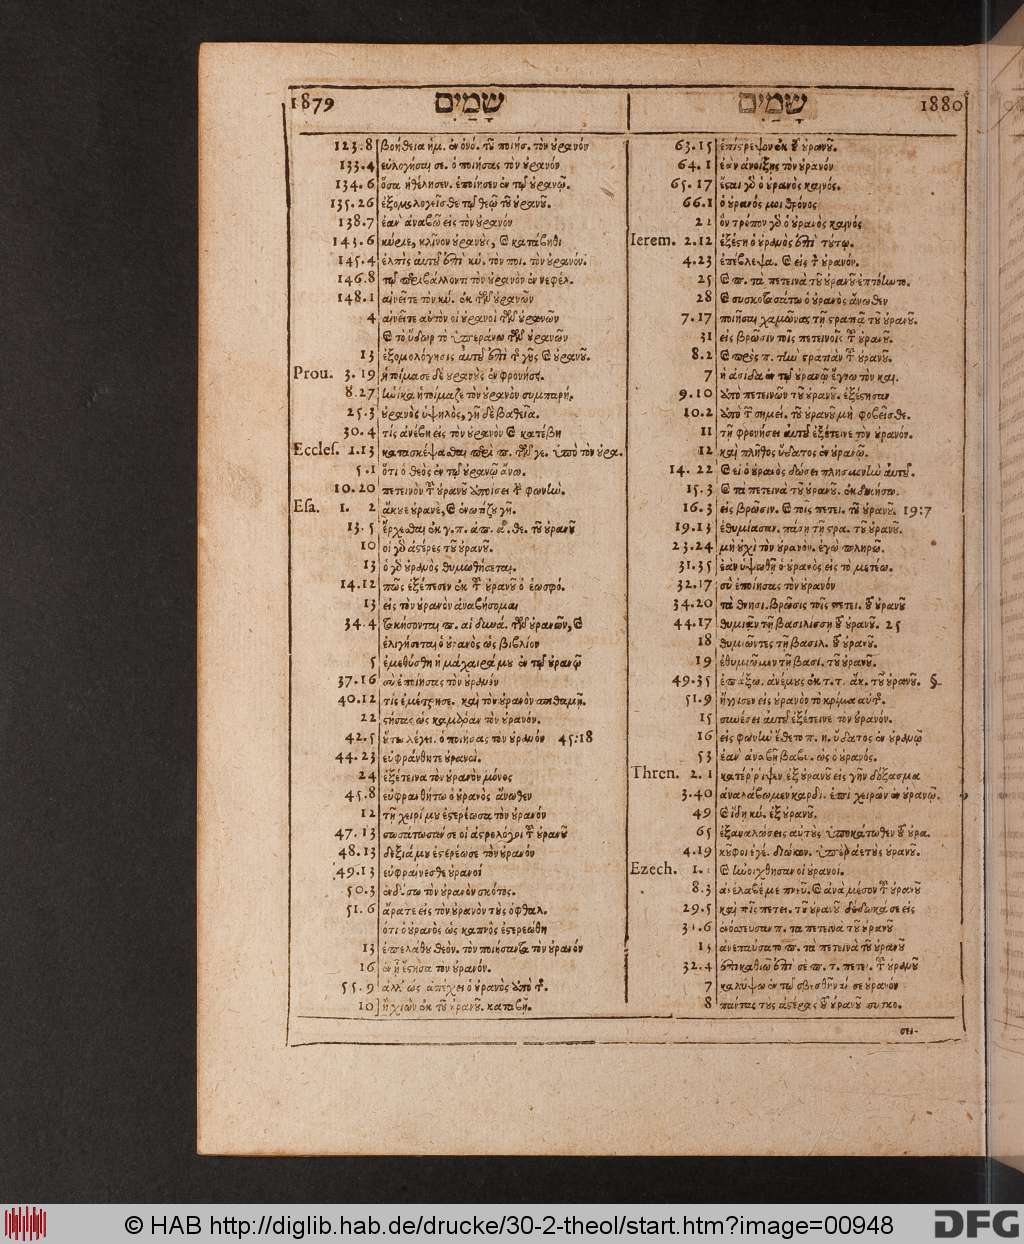 1879 שָׁמַיִם
123.8 βοήθεια ἡμ. ἐν ὀνό. τοῦ ποιήσ. τὸν οὐρανὸν
133.4 εὐλογήσαι σε. ὁ ποιήσας τὸν οὐρανὸν
134.6 ὅσα ἠθέλησεν. ἐποίησεν ἐν τῷ οὐρανῷ.
135.26 ἐξομολογεῖσθε τῷ θεῷ τοῦ οὐρανοῦ.
138.7 ἐὰν ἀναβῶ εἰς τὸν οὐρανὸν
143.6 κύριε, κλῖνον οὐρανοὺς, καὶ κατάβηθι
145.4 ἐλπὶς αὐτοῦ ἐπὶ κύ. τὸν ποι. τὸν οὐρανόν.
146.8 τῷ περιβάλλοντι τὸν οὐρανὸν ἐν νεφέλ.
148.1 αἰνεῖτε τὸν κύ. ἐκ τῶν οὐρανῶν
4 αἰνεῖτε αὐτὸν οἱ οὐρανοὶ τῶν οὐρανῶν
καὶ τὸ ὕδωρ τὸ ὑπεράνω τῶν οὐρανῶν
13 ἐξομολόγησις αὐτοῦ ἐπὶ τῆς γῆς καὶ οὐρανοῦ.
Prou. 3.19 ἡτοίμασε δὲ οὐρανοὺς ἐν φρονήσ.
8.27 ἡνίκα ἡτοίμαζε τὸν οὐρανὸν συμπαρή.
25.3 οὐρανὸς ὑψηλὸς, γῆ δὲ βαθεῖα.
30.4 τίς ἀνέβη εἰς τὸν οὐρανὸν καὶ κατέβη
Eccles. 1.13 κατασκέψασθαι περὶ π. τῶν γε. ὑπὸ τὸν οὐρα.
5.1 ὅτι ὁ θεὸς ἐν τῷ οὐρανῷ ἄνω.
10.20 πετεινὸν τοῦ οὐρανοῦ ἀποίσει τὴν φωνήν.
Esa. 1. 2 ἄκουε οὐρανὲ, καὶ ἐνωτίζου γῆ.
13.5 ἔρχεσθαι ἐκ γ. π. ἀπ. ἄ. θε. τοῦ οὐρανοῦ
10 οἱ γὰρ ἀστέρες τοῦ οὐρανοῦ.
13 ὁ γὰρ οὐρανὸς θυμωθήσεται.
14.12 πῶς ἐξέπεσεν ἐκ τοῦ οὐρανοῦ ὁ ἑωσφό.
13 εἰς τὸν οὐρανὸν ἀναβήσομαι
34.4 τακήσονται π. αἱ δυνά. τῶν οὐρανῶν, καὶ
ἑλιγήσεται ὁ οὐρανὸς ὡς βιβλίον
5 ἐμεθύσθη ἡ μάχαιρά μου ἐν τῷ οὐρανῷ
37.16 σὺ ἐποίησας τὸν οὐρανὸν
40.12 τίς ἐμέτρησε. καὶ τὸν οὐρανὸν σπιθαμῇ.
22 στήσας ὡς καμάραν τὸν οὐρανόν.
42.5 οὕτω λέγει. ὁ ποιήσας τὸν οὐρανὸν 45:18
44.23 εὐφράνθητε οὐρανοὶ.
24 ἐξέτεινα τὸν οὐρανὸν μόνος
45.8 εὐφρανθήτω ὁ οὐρανὸς ἄνωθεν
12 τῇ χειρί μου ἐστερέωσα τὸν οὐρανὸν
47.13 σωσάτωσάν σε οἱ ἀστρολόγοι τοῦ οὐρανοῦ
48.13 δεξιά μου ἐστερέωσε τὸν οὐρανὸν
49.13 εὐφραίνεσθε οὐρανοὶ
50.3 ἐνδύσω τὸν οὐρανὸν σκότος.
51.6 ἄρατε εἰς τὸν οὐρανὸν τοὺς ὀφθαλ.
ὅτι ὁ οὐρανὸς ὡς καπνὸς ἐστερεώθη
13 ἐπελάθου θεὸν. τὸν ποιήσαντα τὸν οὐρανὸν
16 ἐν ᾗ ἔστησα τὸν οὐρανόν.
55.9 ἀλλ' ὡς ἀπέχει ὁ οὐρανὸς ἀπὸ τῆς.
10 ἢ χιὼν ἐκ τοῦ οὐρανοῦ. καταβῇ.
שָׁמַיִם 1880
63.15 ἐπίστρεψον ἐκ τοῦ οὐρανοῦ.
64.1 ἐὰν ἀνοίξῃς τὸν οὐρανὸν
65.17 ἔσται γὰρ ὁ οὐρανὸς καινός.
66.1 ὁ οὐρανός μοι θρόνος
22 ὃν τρόπον γὰρ ὁ οὐρανὸς καινὸς
Ierem. 2.12 ἐξέστη ὁ οὐρανὸς ἐπὶ τούτῳ.
4.23 ἐπέβλεψα. καὶ εἰς τὸν οὐρανόν.
25 καὶ π. τὰ πετεινὰ τοῦ οὐρανοῦ ἐπτόωντο.
28 καὶ συσκοτασάτω ὁ οὐρανὸς ἄνωθεν
7.17 ποιῆσαι χαμῶνας τῇ στρατιᾷ τοῦ οὐρανοῦ.
31 εἰς βρῶσιν τοῖς πετεινοῖς τοῦ οὐρανοῦ.
8.2 καὶ πρὸς π. τὴν στρατιὰν τοῦ οὐρανοῦ.
7 ἡ ἀσίδα ἐν τῷ οὐρανῷ ἔγνω τὸν και.
9.10 ἀπὸ πετεινῶν τοῦ οὐρανοῦ. ἐξέστησαν
10.2 ἀπὸ τῶν σημεί. τοῦ οὐρανοῦ μὴ φοβεῖσθε.
11 τῇ φρονήσει αὐτοῦ ἐξέτεινε τὸν οὐρανόν.
12 καὶ πλῆθος ὕδατος ἐν οὐρανῷ.
14. 22 καὶ εἰ ὁ οὐρανὸς δώσει πλησμονὴν αὐτοῦ.
15.3 καὶ τὰ πετεινὰ τοῦ οὐρανοῦ.
16.3 εἰς βρῶσιν. καὶ τοῖς πετει. τοῦ οὐρανοῦ. 19:7
19.13 ἐθυμίασαν. πάσῃ τῇ στρα. τοῦ οὐρανοῦ.
23.24 μὴ οὐχὶ τὸν οὐρανὸν. ἐγὼ πληρῶ.
31.35 ἐὰν ὑψωθῇ ὁ οὐρανὸς εἰς τὸ μετέω.
32.17 σὺ ἐποίησας τὸν οὐρανὸν
34.20 τὰ θνησι. βρῶσις τοῖς πετει. τοῦ οὐρανοῦ
44.17 θυμιᾶν τῇ βασιλίσσῃ τοῦ οὐρανοῦ. 25
18 θυμιῶντες τῇ βασιλ. τοῦ οὐρανοῦ.
19 ἐθυμιῶμεν τῇ βασι. τοῦ οὐρανοῦ.
49.35 ἐπάξω. ἀνέμους ἐκ τ. τ. ἄκ. τοῦ οὐρανοῦ. §.
51.9 ἤγγισεν εἰς οὐρανὸν τὸ κρίμα αὐτῆς.
15 συνέσει αὐτοῦ ἐξέτεινε τὸν οὐρανόν.
16 εἰς φωνὴν ἔθετο π. η. ὕδατος ἐν οὐρανῷ
53 ἐὰν ἀναβῇ βαβυ. ὡς ὁ οὐρανὸς.
Thren. 2.1 κατέρριψεν ἐξ οὐρανοῦ εἰς γῆν δόξασμα
3.40 ἀναλάβωμεν καρδί. ἐπὶ χειρῶν ἐν οὐρανῷ.
49 καὶ ἴδῃ κύ. ἐξ οὐρανοῦ.
65 ἐξαναλώσεις αὐτοὺς ὑποκάτωθεν τοῦ οὐρα.
4.19 κοῦφοι ἐγέ. διώκον. ὑπὲρ ἀετοὺς οὐρανοῦ.
Ezech. 1. καὶ ἠνοίχθησαν οἱ οὐρανοί.
8.3 ἀνέλαβέ με πνεῦ. καὶ ἀνὰ μέσον τοῦ οὐρανοῦ
29.5 καὶ τοῖς πετει. τοῦ οὐρανοῦ δέδωκά σε εἰς
31.6 ἐνόσσευσαν π. τὰ πετεινὰ τοῦ οὐρανοῦ
13 ἀνεπαύσατο π. τὰ πετεινὰ τοῦ οὐρανοῦ
32.4 ἐπικαθιῶ ἐπὶ σὲ π. τ. πετει. τοῦ οὐρανοῦ
7 καλύψω ἐν τῷ σβεσθῆναί σε οὐρανὸν
8 πάντας τοὺς ἀστέρας τοῦ οὐρανοῦ συσκο.
σει-
© HAB http://diglib.hab.de/drucke/30-2-theol/start.htm?image=00948
DFG